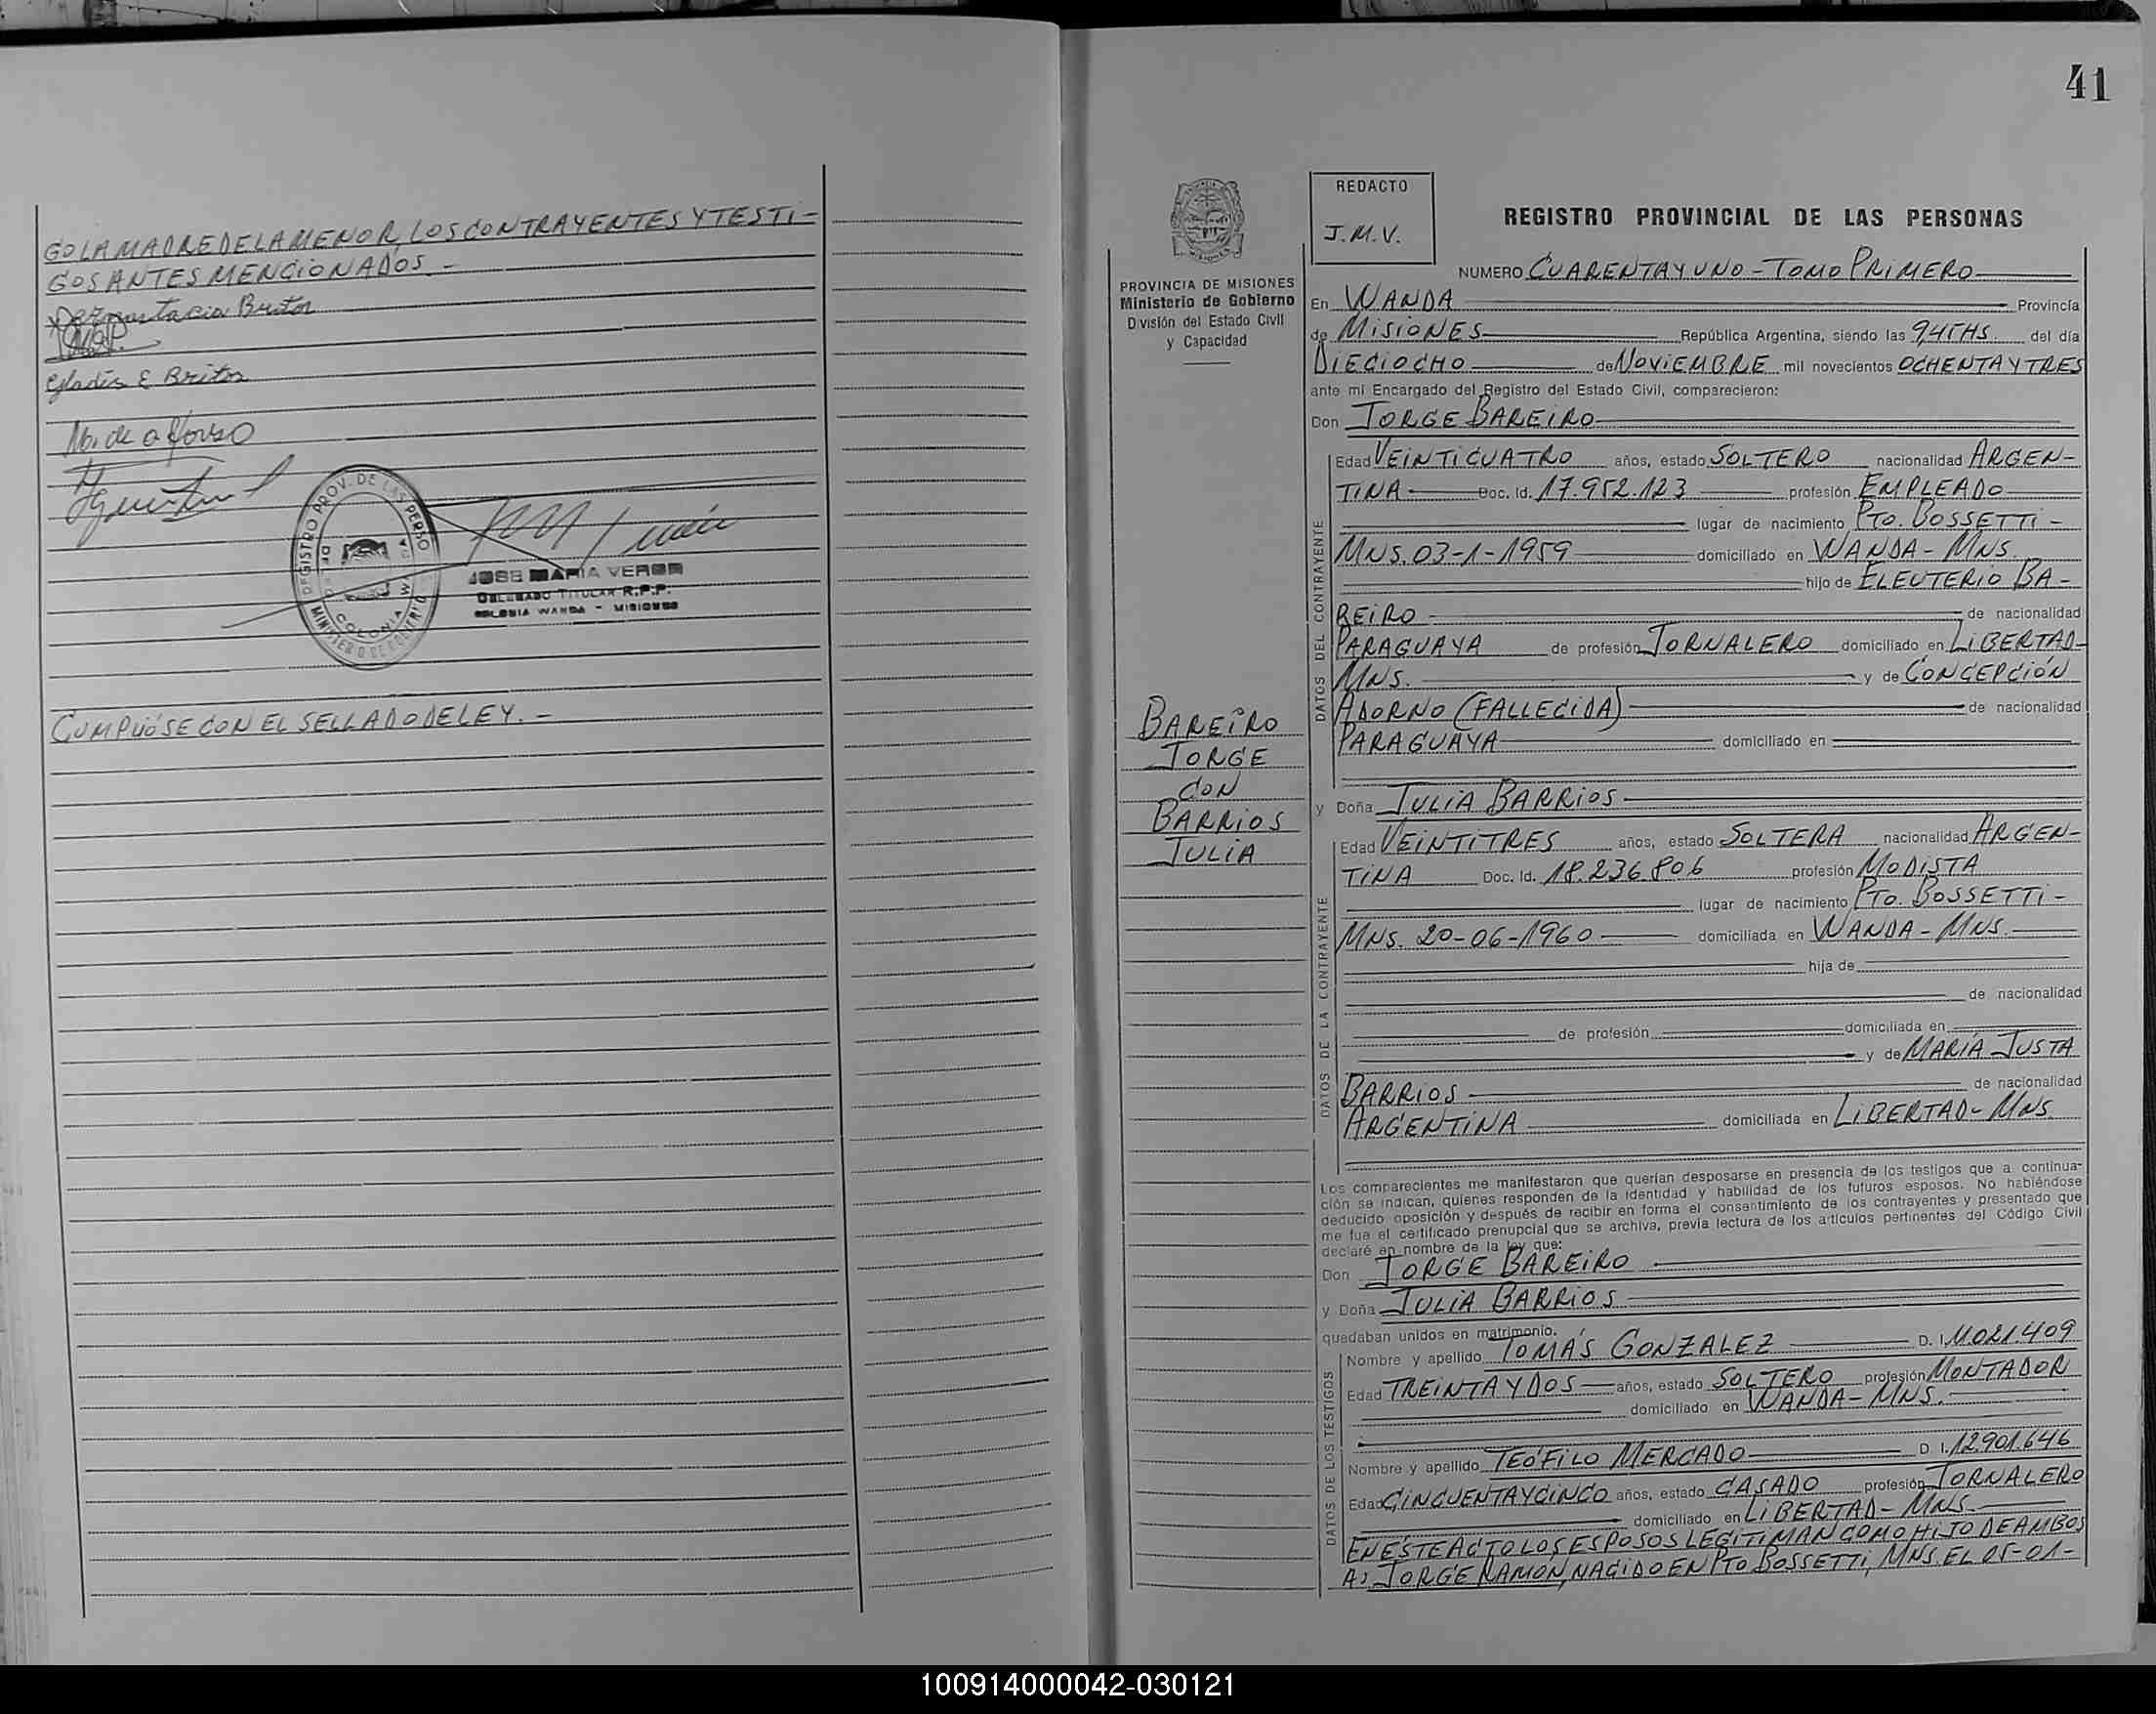 GO LA MADRE DE LA MENOR, LOS CONTRAYENTES Y TESTI-
GOS ANTES MENCIONADOS.-
Britos
Gladis E Britos
REGISTRO PROV. DE LAS PERSO
MINISTERIO DE GOBIERNO
COLONIA W
JOSE MARIA VERON
DELEGADO TITULAR R.P.P.
COLONIA WANDA - MISIONES
CUMPLIÓSE CON EL SELLADO DE LEY.-
41
PROVINCIA DE MISIONES
Ministerio de Gobierno
División del Estado Civil
y Capacidad
BAREIRO
JORGE
CON
BARRIOS
JULIA
REDACTO
J.M.V.
REGISTRO PROVINCIAL DE LAS PERSONAS
NUMERO CUARENTA Y UNO - TOMO PRIMERO
En WANDA Provincia
de MISIONES República Argentina, siendo las 9,45 HS. del día
DIECIOCHO de NOVIEMBRE mil novecientos OCHENTA Y TRES
ante mi Encargado del Registro del Estado Civil, comparecieron:
Don JORGE BAREIRO
DATOS DEL CONTRAYENTE
Edad VEINTICUATRO años, estado SOLTERO nacionalidad ARGEN-
TINA Doc. Id. 17.952.123 profesión EMPLEADO
lugar de nacimiento PTO. BOSSETTI -
MNS. 03-1-1959 domiciliado en WANDA - MNS.
hijo de ELEUTERIO BA-
REIRO de nacionalidad
PARAGUAYA de profesión JORNALERO domiciliado en LIBERTAD-
MNS. y de CONCEPCIÓN
ADORNO (FALLECIDA) de nacionalidad
PARAGUAYA domiciliado en
y Doña JULIA BARRIOS
DATOS DE LA CONTRAYENTE
Edad VEINTITRES años, estado SOLTERA nacionalidad ARGEN-
TINA Doc. Id. 18.236.806 profesión MODISTA
lugar de nacimiento PTO. BOSSETTI -
MNS. 20-06-1960 domiciliada en WANDA - MNS.
hija de
de nacionalidad
de profesión domiciliada en
y de MARÍA JUSTA
BARRIOS de nacionalidad
ARGENTINA domiciliada en LIBERTAD - MNS.
Los comparecientes me manifestaron que querían desposarse en presencia de los testigos que a continua-
ción se indican, quienes responden de la identidad y habilidad de los futuros esposos. No habiéndose
deducido oposición y después de recibir en forma el consentimiento de los contrayentes y presentado que
me fue el certificado prenupcial que se archiva, previa lectura de los artículos pertinentes del Código Civil
declaré en nombre de la ley que:
Don JORGE BAREIRO
y Doña JULIA BARRIOS
quedaban unidos en matrimonio.
DATOS DE LOS TESTIGOS
Nombre y apellido TOMÁS GONZALEZ D. I. 11.021.409
Edad TREINTA Y DOS años, estado SOLTERO profesión MONTADOR
domiciliado en WANDA - MNS.
Nombre y apellido TEÓFILO MERCADO D. I. 12.901.646
Edad CINCUENTA Y CINCO años, estado CASADO profesión JORNALERO
domiciliado en LIBERTAD - MNS.
EN ESTE ACTO LOS ESPOSOS LEGITIMAN COMO HIJO DE AMBOS
A: JORGE RAMÓN, NACIDO EN PTO BOSSETTI, MNS. EL 05-01-
100914000042-030121